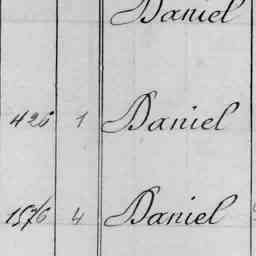 Daniel
426 1 Daniel
1576 4 Daniel